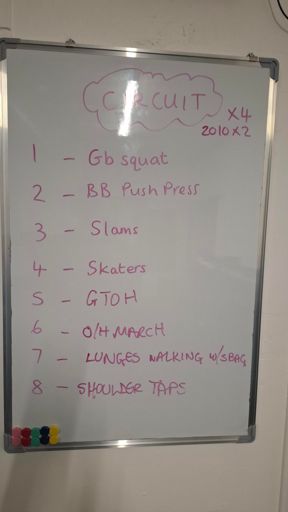 CIRCUIT
X4
2010 X2
1 - Gb squat
2 - BB Push Press
3 - Slams
4 - Skaters
5 - GTOH
6 - O/H MARCH
7 - LUNGES WALKING W/SBAG
8 - SHOULDER TAPS